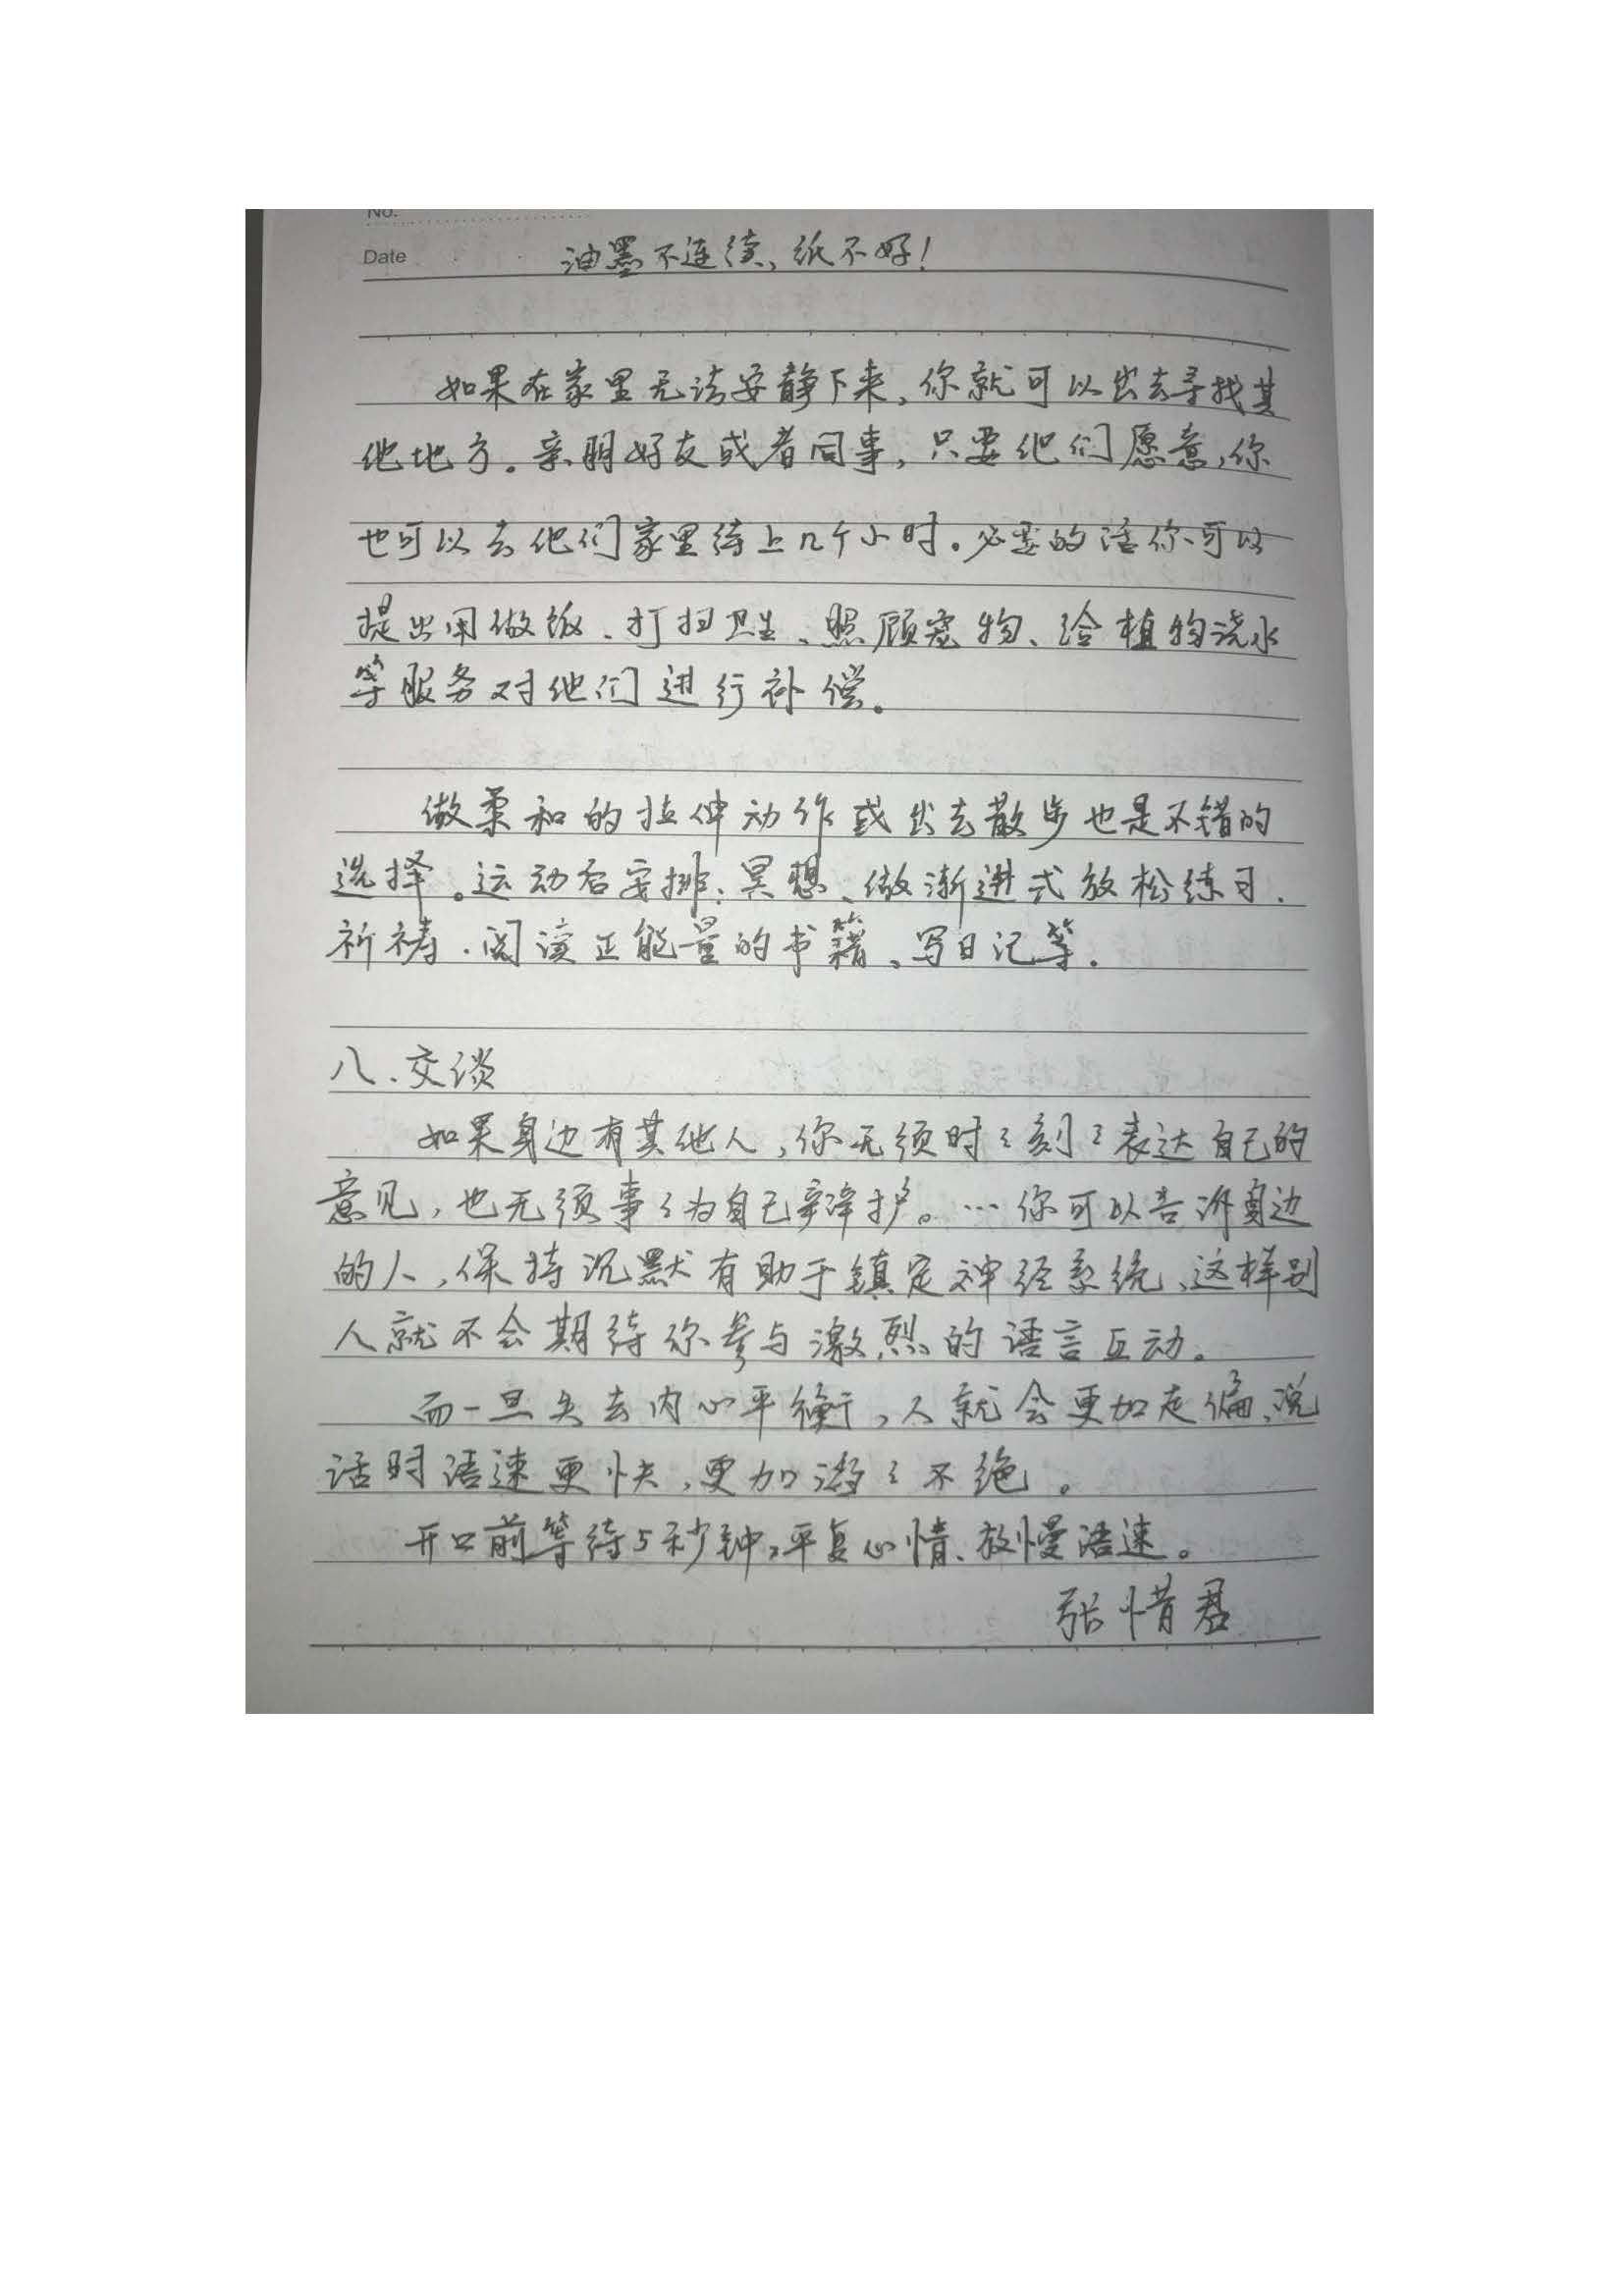 No.
Date
油墨不连续、纸不好！
如果在家里无法安静下来，你就可以出去寻找其
他地方。亲朋好友或者同事，只要他们愿意，你
也可以去他们家里待上几个小时。必要的话你可以
提出用做饭、打扫卫生、照顾宠物、给植物浇水
等服务对他们进行补偿。
做柔和的拉伸动作或出去散步也是不错的
选择。运动后安排：冥想、做渐进式放松练习、
祈祷、阅读正能量的书籍、写日记等。
八、交谈
如果身边有其他人，你无须时ミ刻ミ表达自己的
意见，也无须事ミ为自己辩护。…你可以告诉身边
的人，保持沉默有助于镇定神经系统、这样别
人就不会期待你参与激烈的语言互动。
而一旦失去内心平衡，人就会更加走偏、说
话时语速更快，更加滔ミ不绝。
开口前等待5秒钟，平复心情、放慢语速。
张惜君